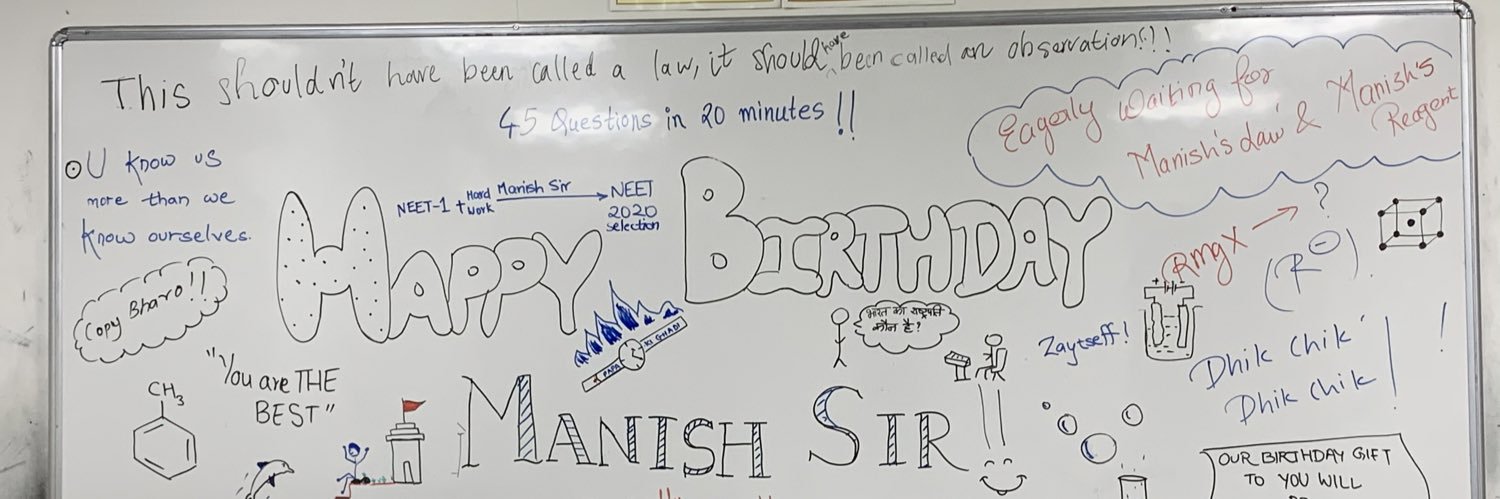 This shouldn't have been called a law, it should have been called an observation!!!
45 Questions in 20 minutes!!
Eagerly Waiting for
Manish's law & Manish's
Reagent
U know us
more than we
know ourselves.
NEET-1 + Hard Work Manish Sir NEET
2020
selection
HAPPY BIRTHDAY
Copy Bharo!!
RmgX ?
(R⊖).
PAPA KI GHADI
भारत का राष्ट्रपति
कौन है?
Zaytseff!
Dhik Chik
Dhik Chik !
CH3
"You are THE
BEST"
MANISH SIR !!
OUR BIRTHDAY GIFT
TO YOU WILL